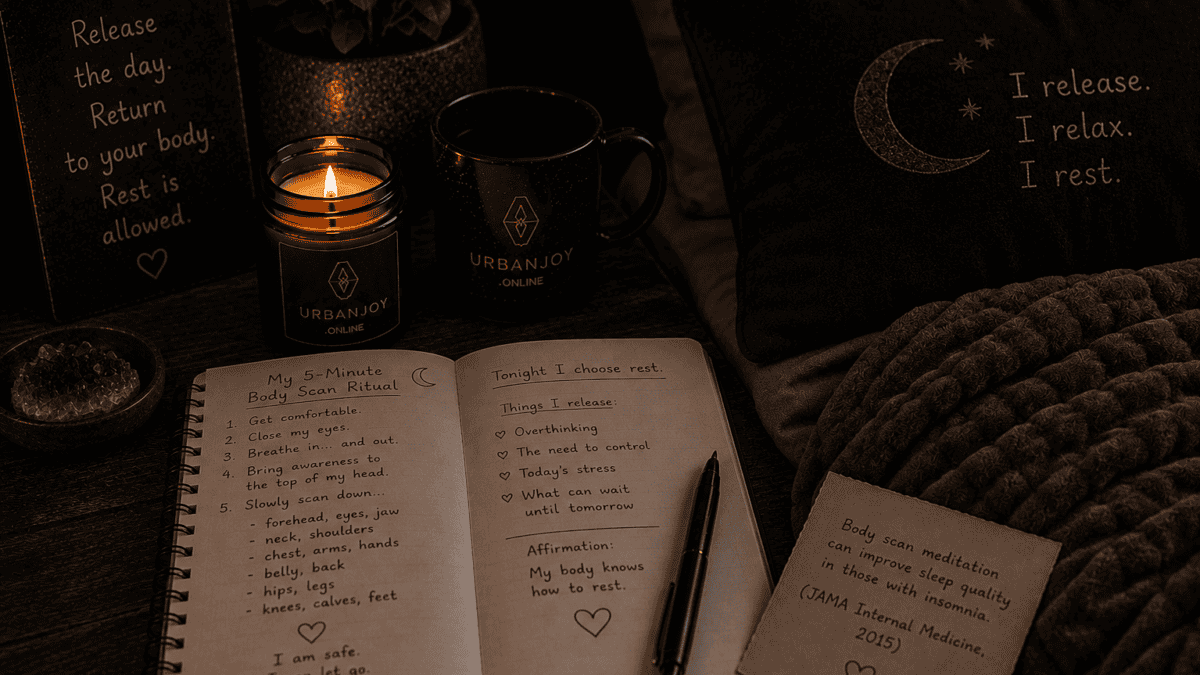 Release
the day.
Return
to your body.
Rest is
allowed.
URBANJOY
.ONLINE
URBANJOY
.ONLINE
I release.
I relax.
I rest.
My 5-Minute
Body Scan Ritual
1. Get comfortable.
2. Close my eyes.
3. Breathe in... and out.
4. Bring awareness to
the top of my head.
5. Slowly scan down...
- forehead, eyes, jaw
- neck, shoulders
- chest, arms, hands
- belly, back
- hips, legs
- knees, calves, feet
I am safe.
let go.
Tonight I choose rest.
Things I release:
Overthinking
The need to control
Today's stress
What can wait
until tomorrow
Affirmation:
My body knows
how to rest.
Body scan meditation
can improve sleep quality
in those with insomnia.
(JAMA Internal Medicine,
2015)